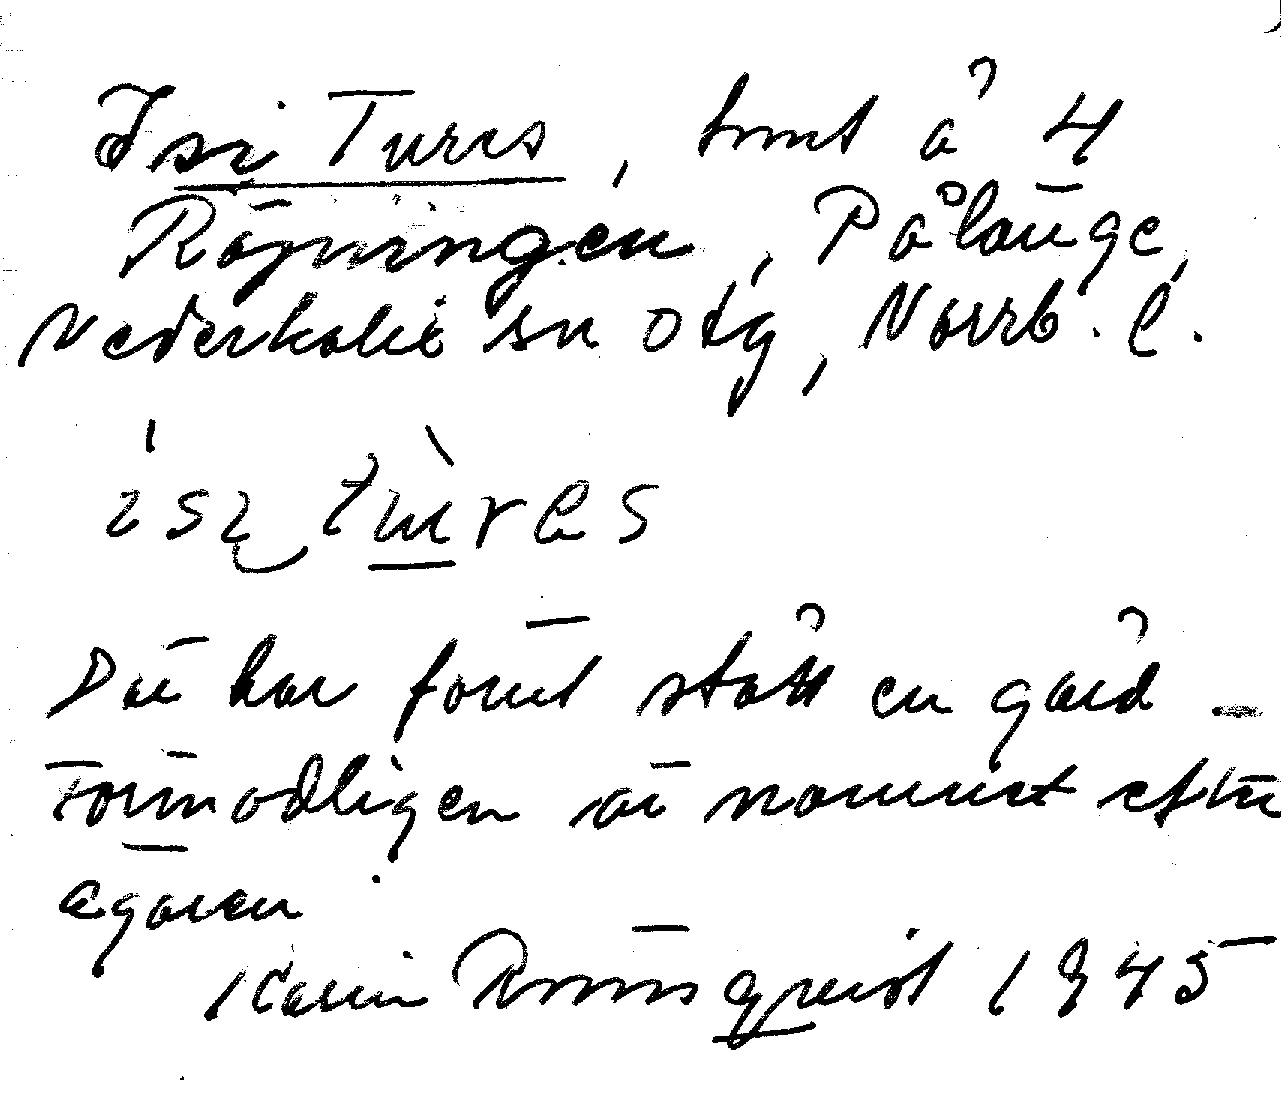 Isi Tures, tomt å 4
Röjningen, Pålänge,
Nederkalix sn otg, Norrb. l.
isi tures
Där har förut stått en gård -
Förmodligen är namnet efter
ägaren.
Karin Rönnqvist 1945